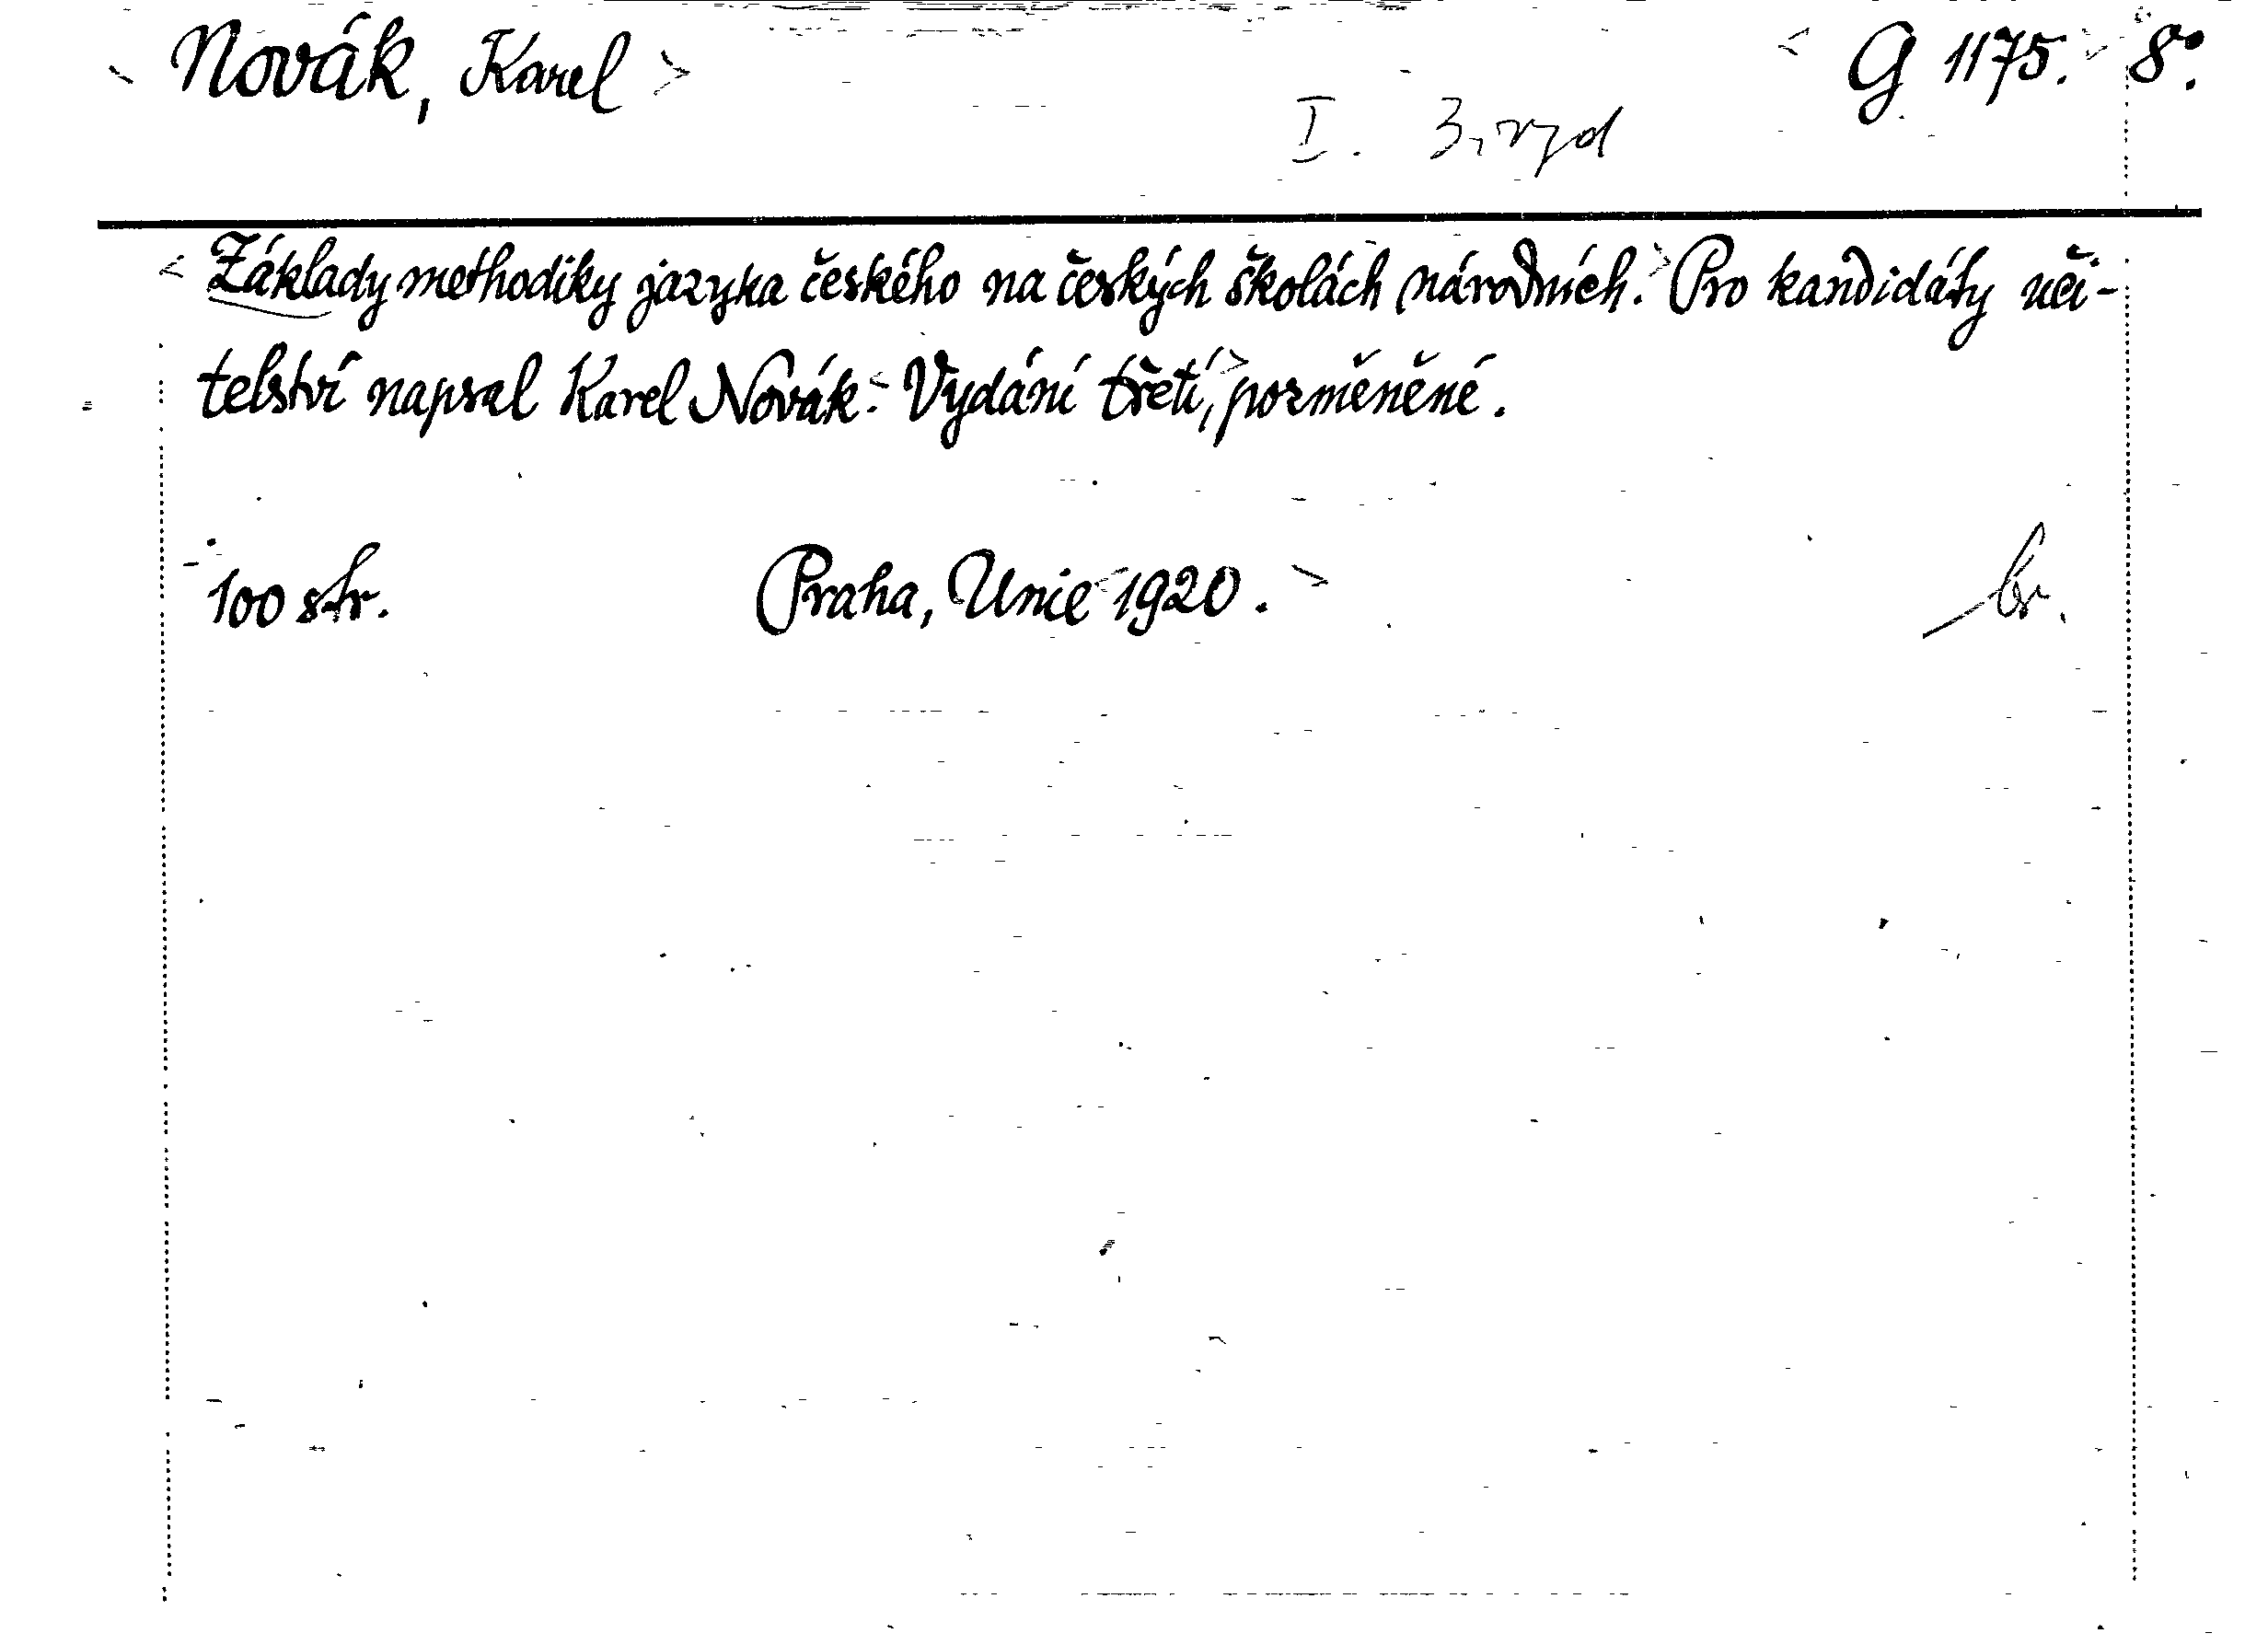 < Novák, Karel > < G 1175. > 8°.
I. 3, vyd
< Základy methodiky jazyka českého na českých školách národních. > Pro kandidáty uči-
telství napsal Karel Novák. < Vydání třetí, > pozměněné.
100 str. Praha, Unie < 1920. > br.